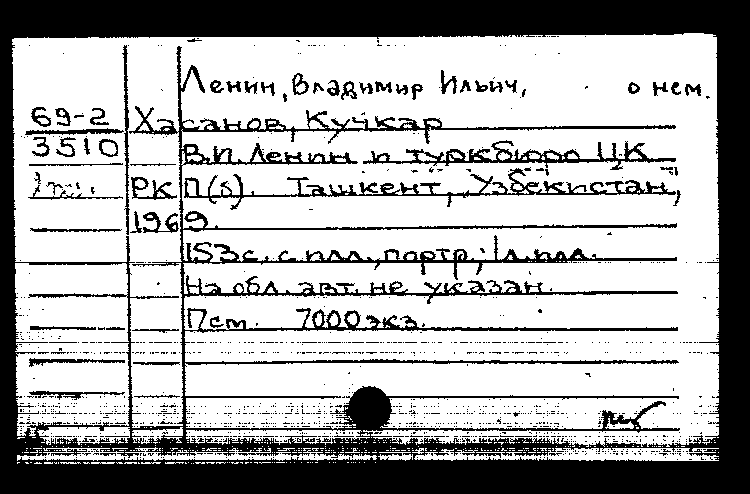 Ленин, Владимир Ильич, о нем.
69-2 Хасанов, Кучкар
3510 В.И. Ленин и туркбюро ЦК
РКП(б). Ташкент, Узбекистан,
1969.
153 с. с илл., портр.; 1 л. илл.
На обл. авт. не указан.
Пст. 7000 экз.